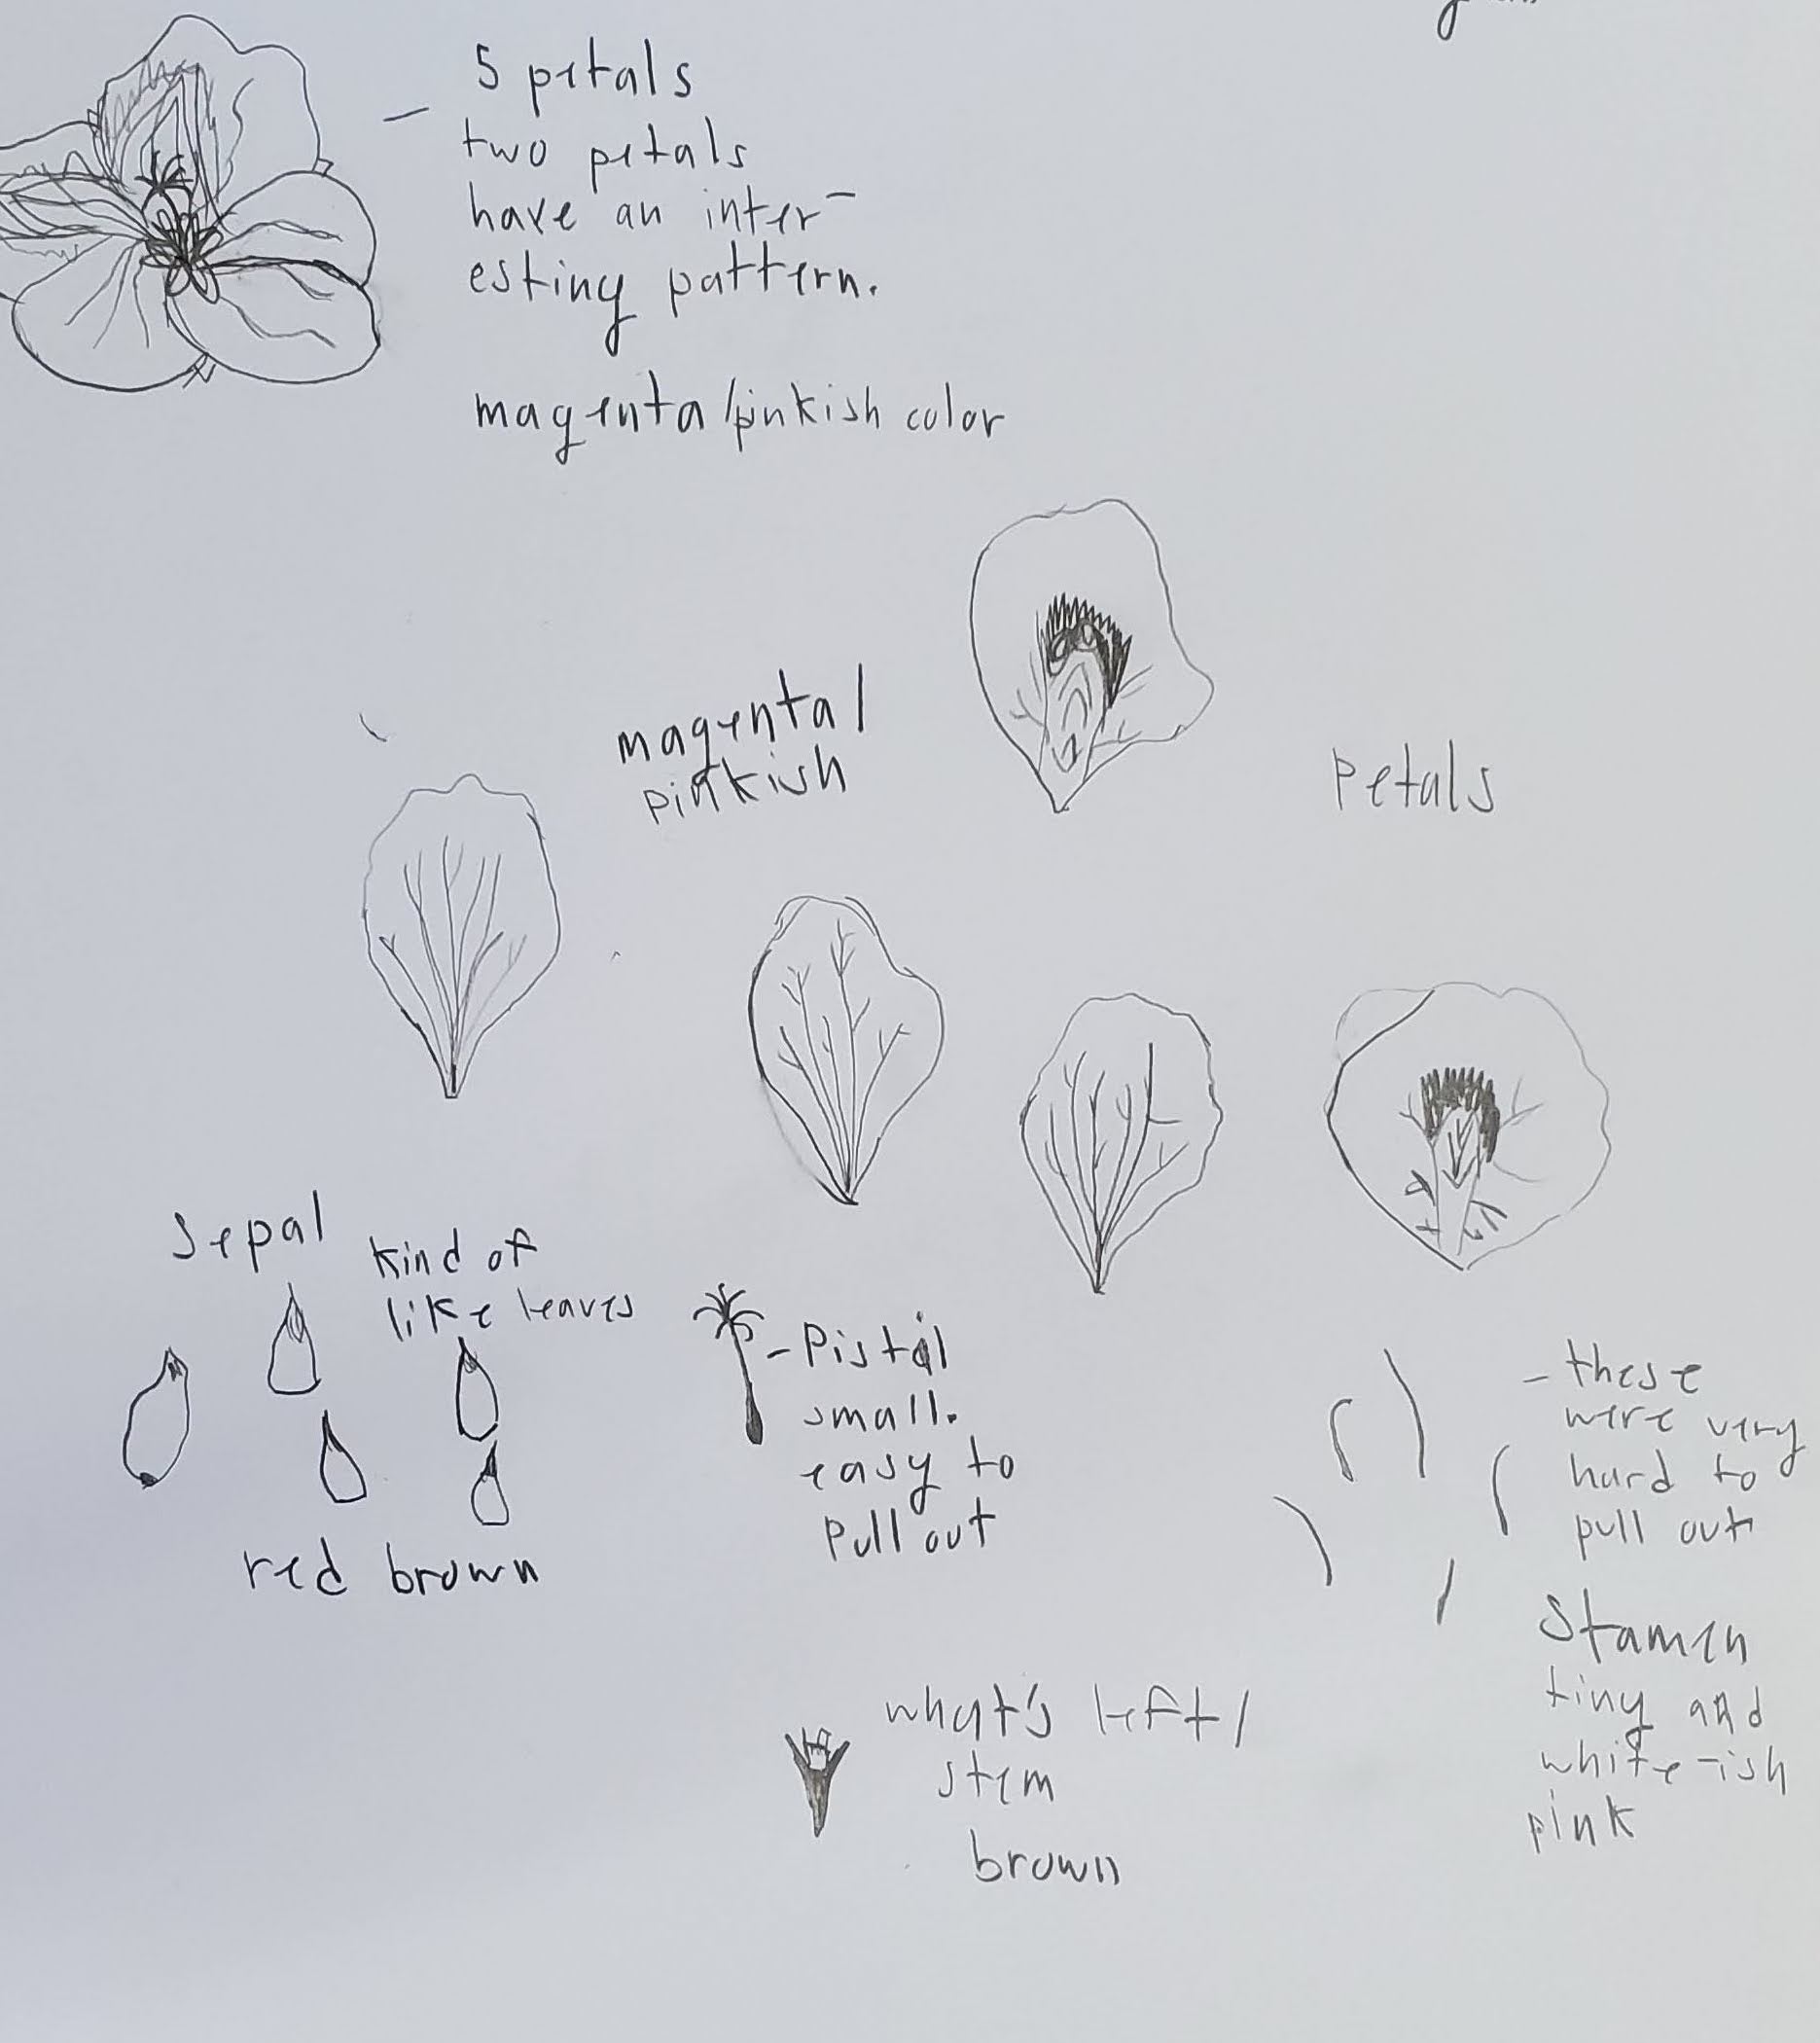 5 petals
two petals
have an inter-
esting pattern.
magenta/pinkish color
magenta/
pinkish
Petals
Sepal
kind of
like leaves
red brown
- Pistil
small.
easy to
Pull out
- these
were very
hard to
pull out
Stamen
tiny and
white-ish
pink
what's left/
stem
brown